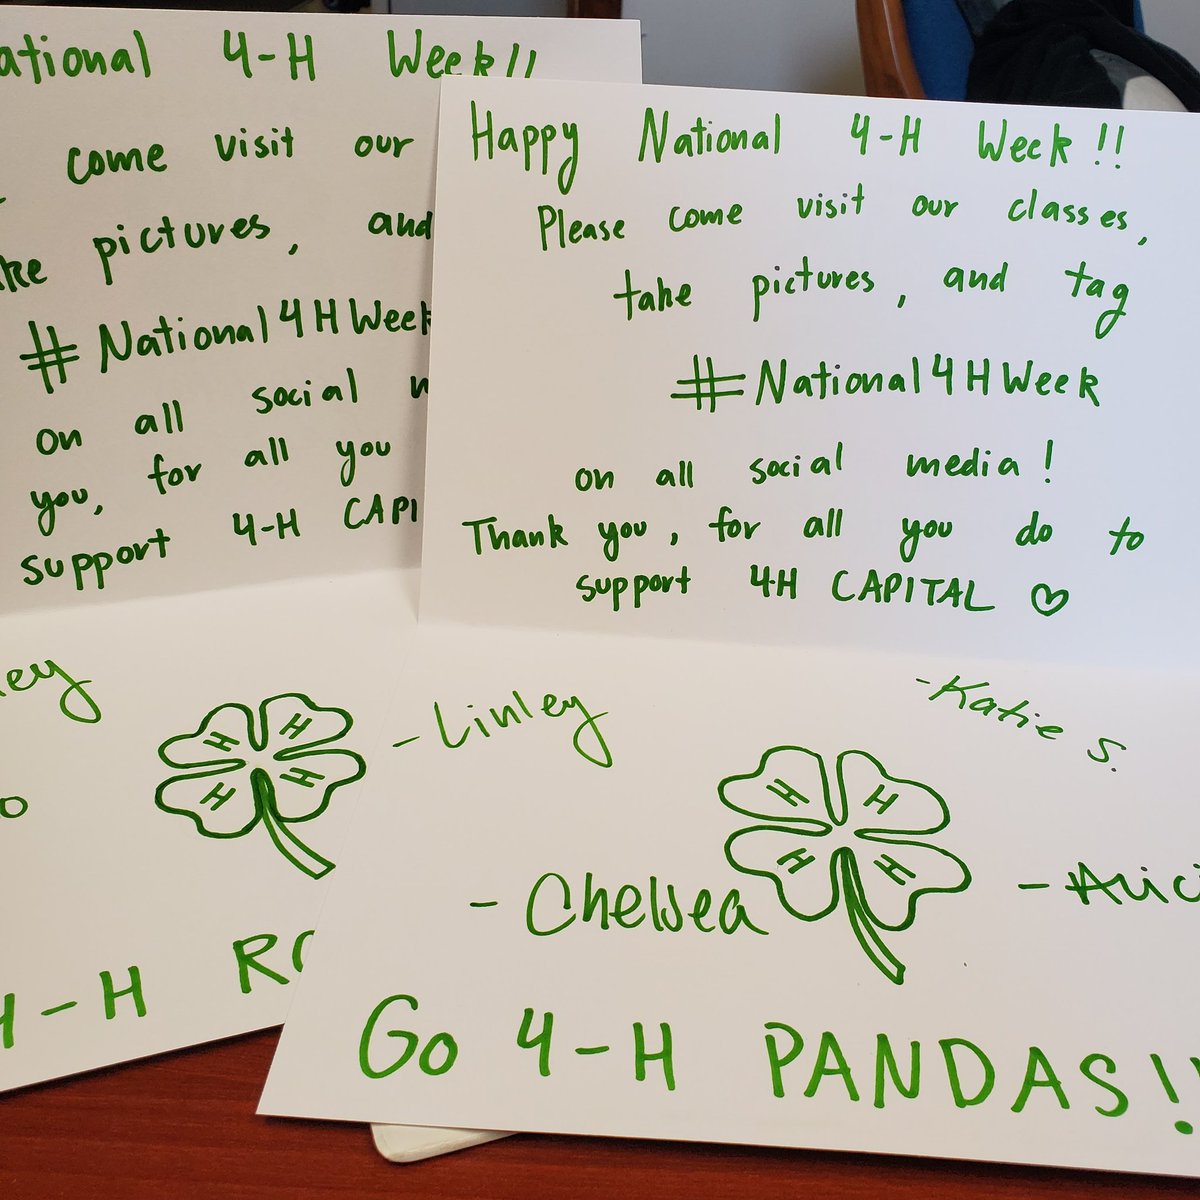 National 4-H Week!!
come visit our
pictures, and
#National4HWeek
on all social
you, for all you
support 4-H
H H H H
4-H
Happy National 4-H Week!!
Please come visit our classes,
take pictures, and tag
#National4HWeek
on all social media!
Thank you, for all you do to
support 4H CAPITAL
-Linley
-Katie S.
H H H H
-Chelsea
Go 4-H PANDAS!!